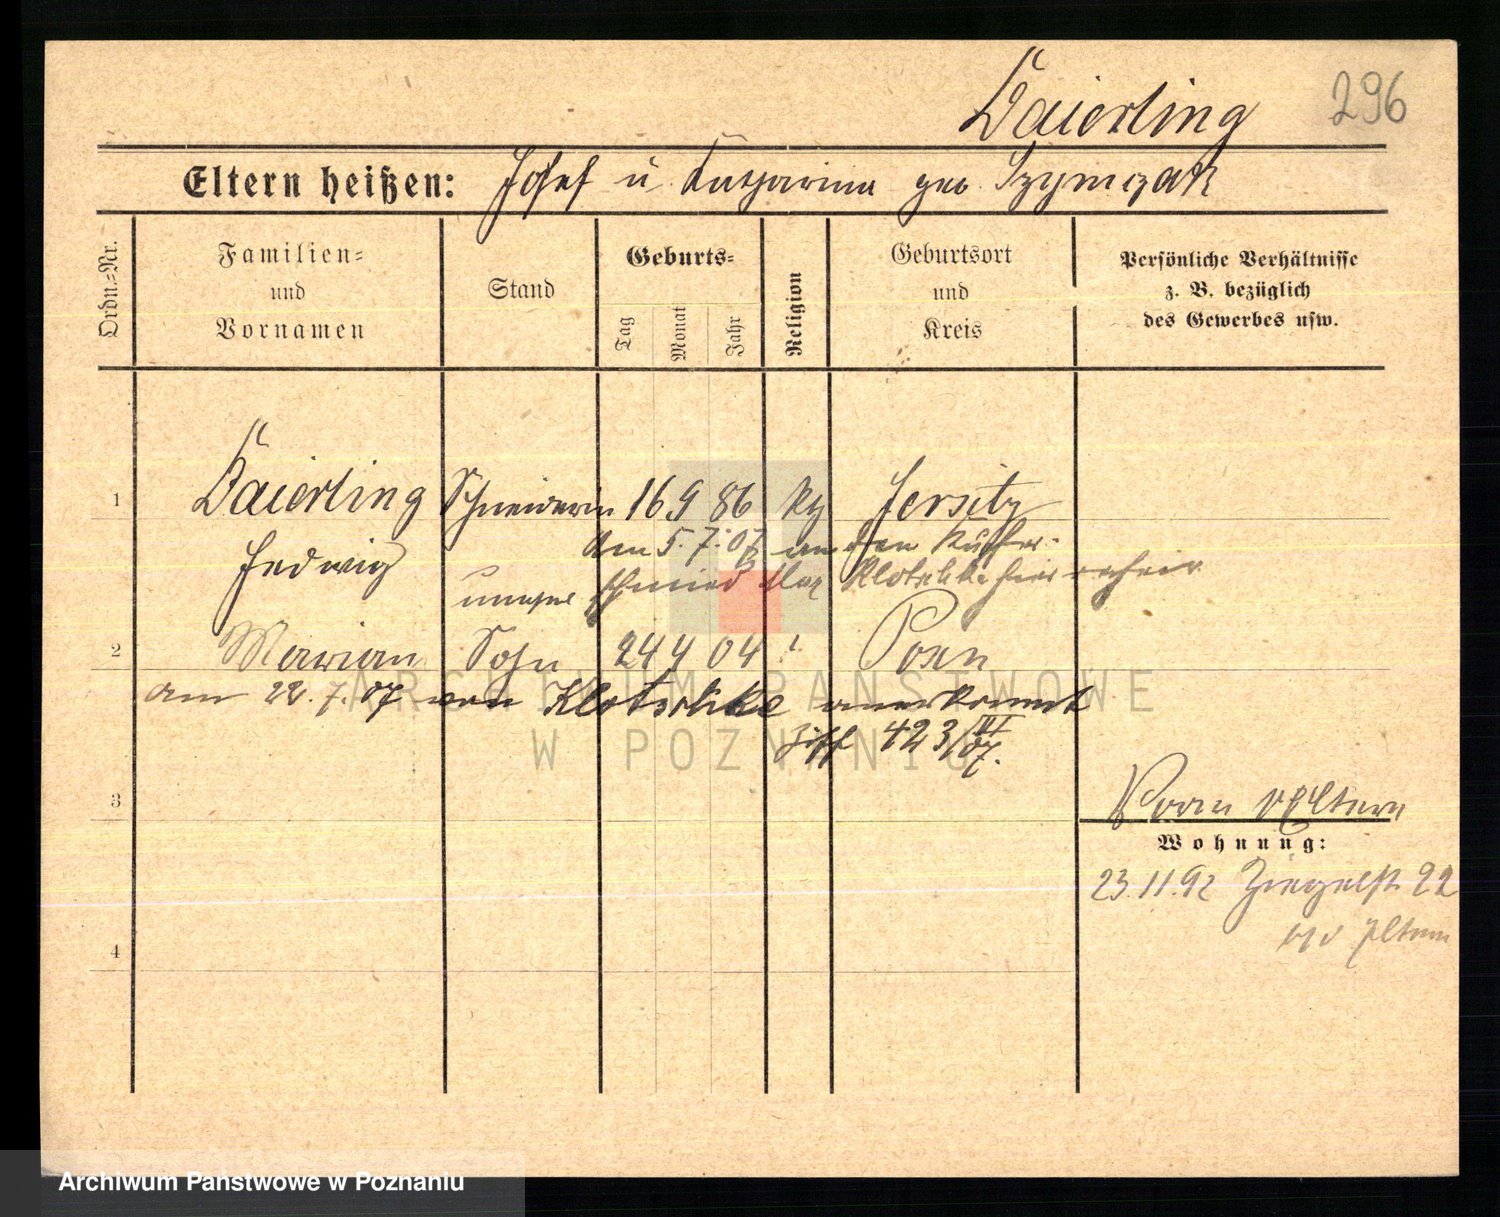 Baierling 296
Eltern heißen: Josef u Katharina geb. Szymczak
Ordn.-Nr.
Familien- und Vornamen
Stand
Geburts-
Tag Monat Jahr
Religion
Geburtsort und Kreis
Persönliche Verhältnisse z. B. bezüglich des Gewerbes usw.
1 Baierling Schneiderin 16 9 86 kth Jersitz
Hedwig am 5.7.07 an den
Klotschke hier
2 Marian Sohn 24 4 04 Posen
am 22.7.07 von Klotschke anerkannt
423/VI 07.
3
v Eltern
Wohnung:
23.11.92 Ziegelstr 22
Eltern
4
ARCHIWUM PAŃSTWOWE
W POZNANIU
Archiwum Państwowe w Poznaniu